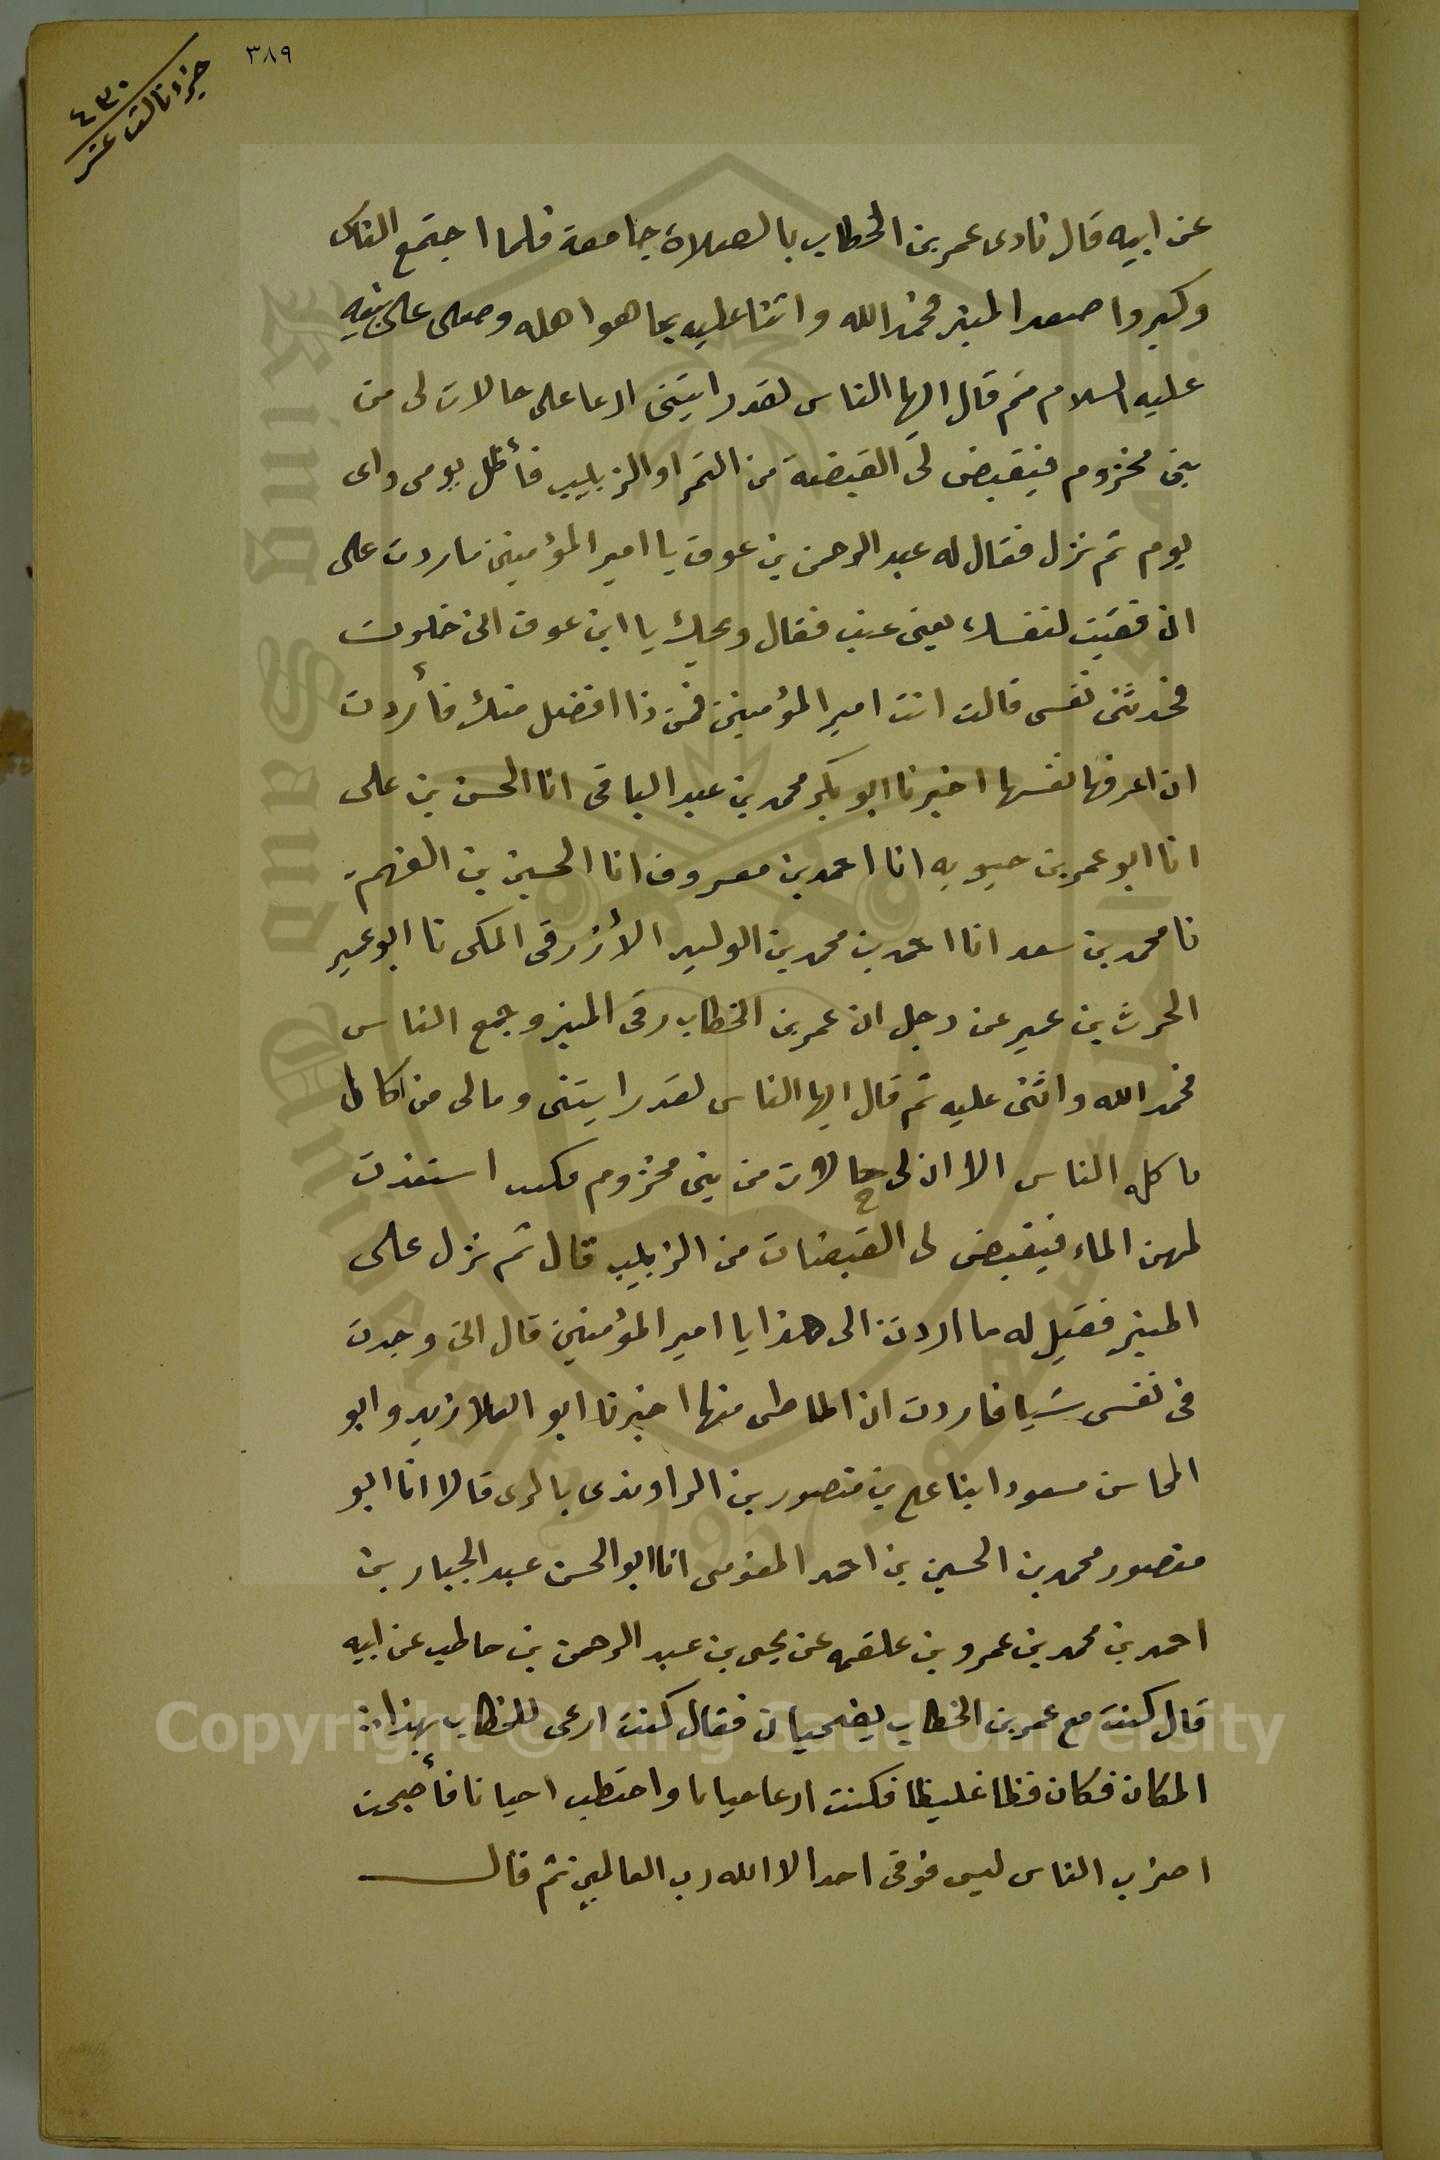 ٣٨٩
٤٣٠
جزء ثالث عشر
عن ابيه قال نادى عمر بن الخطاب بالصلاة جامعة فلما اجتمع الناس
وكبروا صعد المنبر فحمد الله واثنا عليه بما هو اهله وصلى على نبيه
عليه السلام ثم قال ايها الناس لقد رايتنى ارعا على خالات لى من
بنى مخزوم فيقبض لى القبضة من التمر او الزبيب فأظل يومى واى
يوم ثم نزل فقال له عبد الرحمن بن عوف يا امير المؤمنين ما زدت على
ان قميت نفسك يعنى عبت فقال ويحك يا ابن عوف انى خلوت
فحدثتنى نفسى قالت انت امير المؤمنين فمن ذا افضل منك فأردت
ان اعرفها نفسها اخبرنا ابو بكر محمد بن عبد الباقى انا الحسن بن على
انا ابو عمر بن حيويه انا احمد بن معروف انا الحسين بن الفهم
نا محمد بن سعد انا احمد بن محمد بن الوليد الأزرقى المكى نا ابو عمير
الحرث بن عمير عن رجل ان عمر بن الخطاب رقى المنبر وجمع الناس
فحمد الله واثنى عليه ثم قال ايها الناس لقد رايتنى ومالى من اكال
ياكله الناس الا ان لى خالات من بنى مخزوم فكنت استعذب
لهن الماء فيقبضن لى القبضات من الزبيب قال ثم نزل على
المنبر فقيل له ما اردت الى هذا يا امير المؤمنين قال انى وجدت
فى نفسى شيا فاردت ان اطاطى منها اخبرنا ابو العلا زيد وابو
المحاسن مسعود ابنا على بن منصور بن الراوندى بالرى قالا انا ابو
منصور محمد بن الحسين بن احمد المقومى انا ابو الحسن عبد الجبار بن
احمد بن محمد بن عمرو بن علقمه عن يحيى بن عبد الرحمن بن حاطب عن ابيه
قال كنت مع عمر بن الخطاب بضجنان فقال كنت ارعى للخطاب بهذا
المكان فكان فظا غليظا فكنت ارعا احيانا واحتطب احيانا فأصبحت
اضرب الناس ليس فوقى احد الا الله رب العالمين ثم قال
Copyright © King Saud University
King Saud University
1957